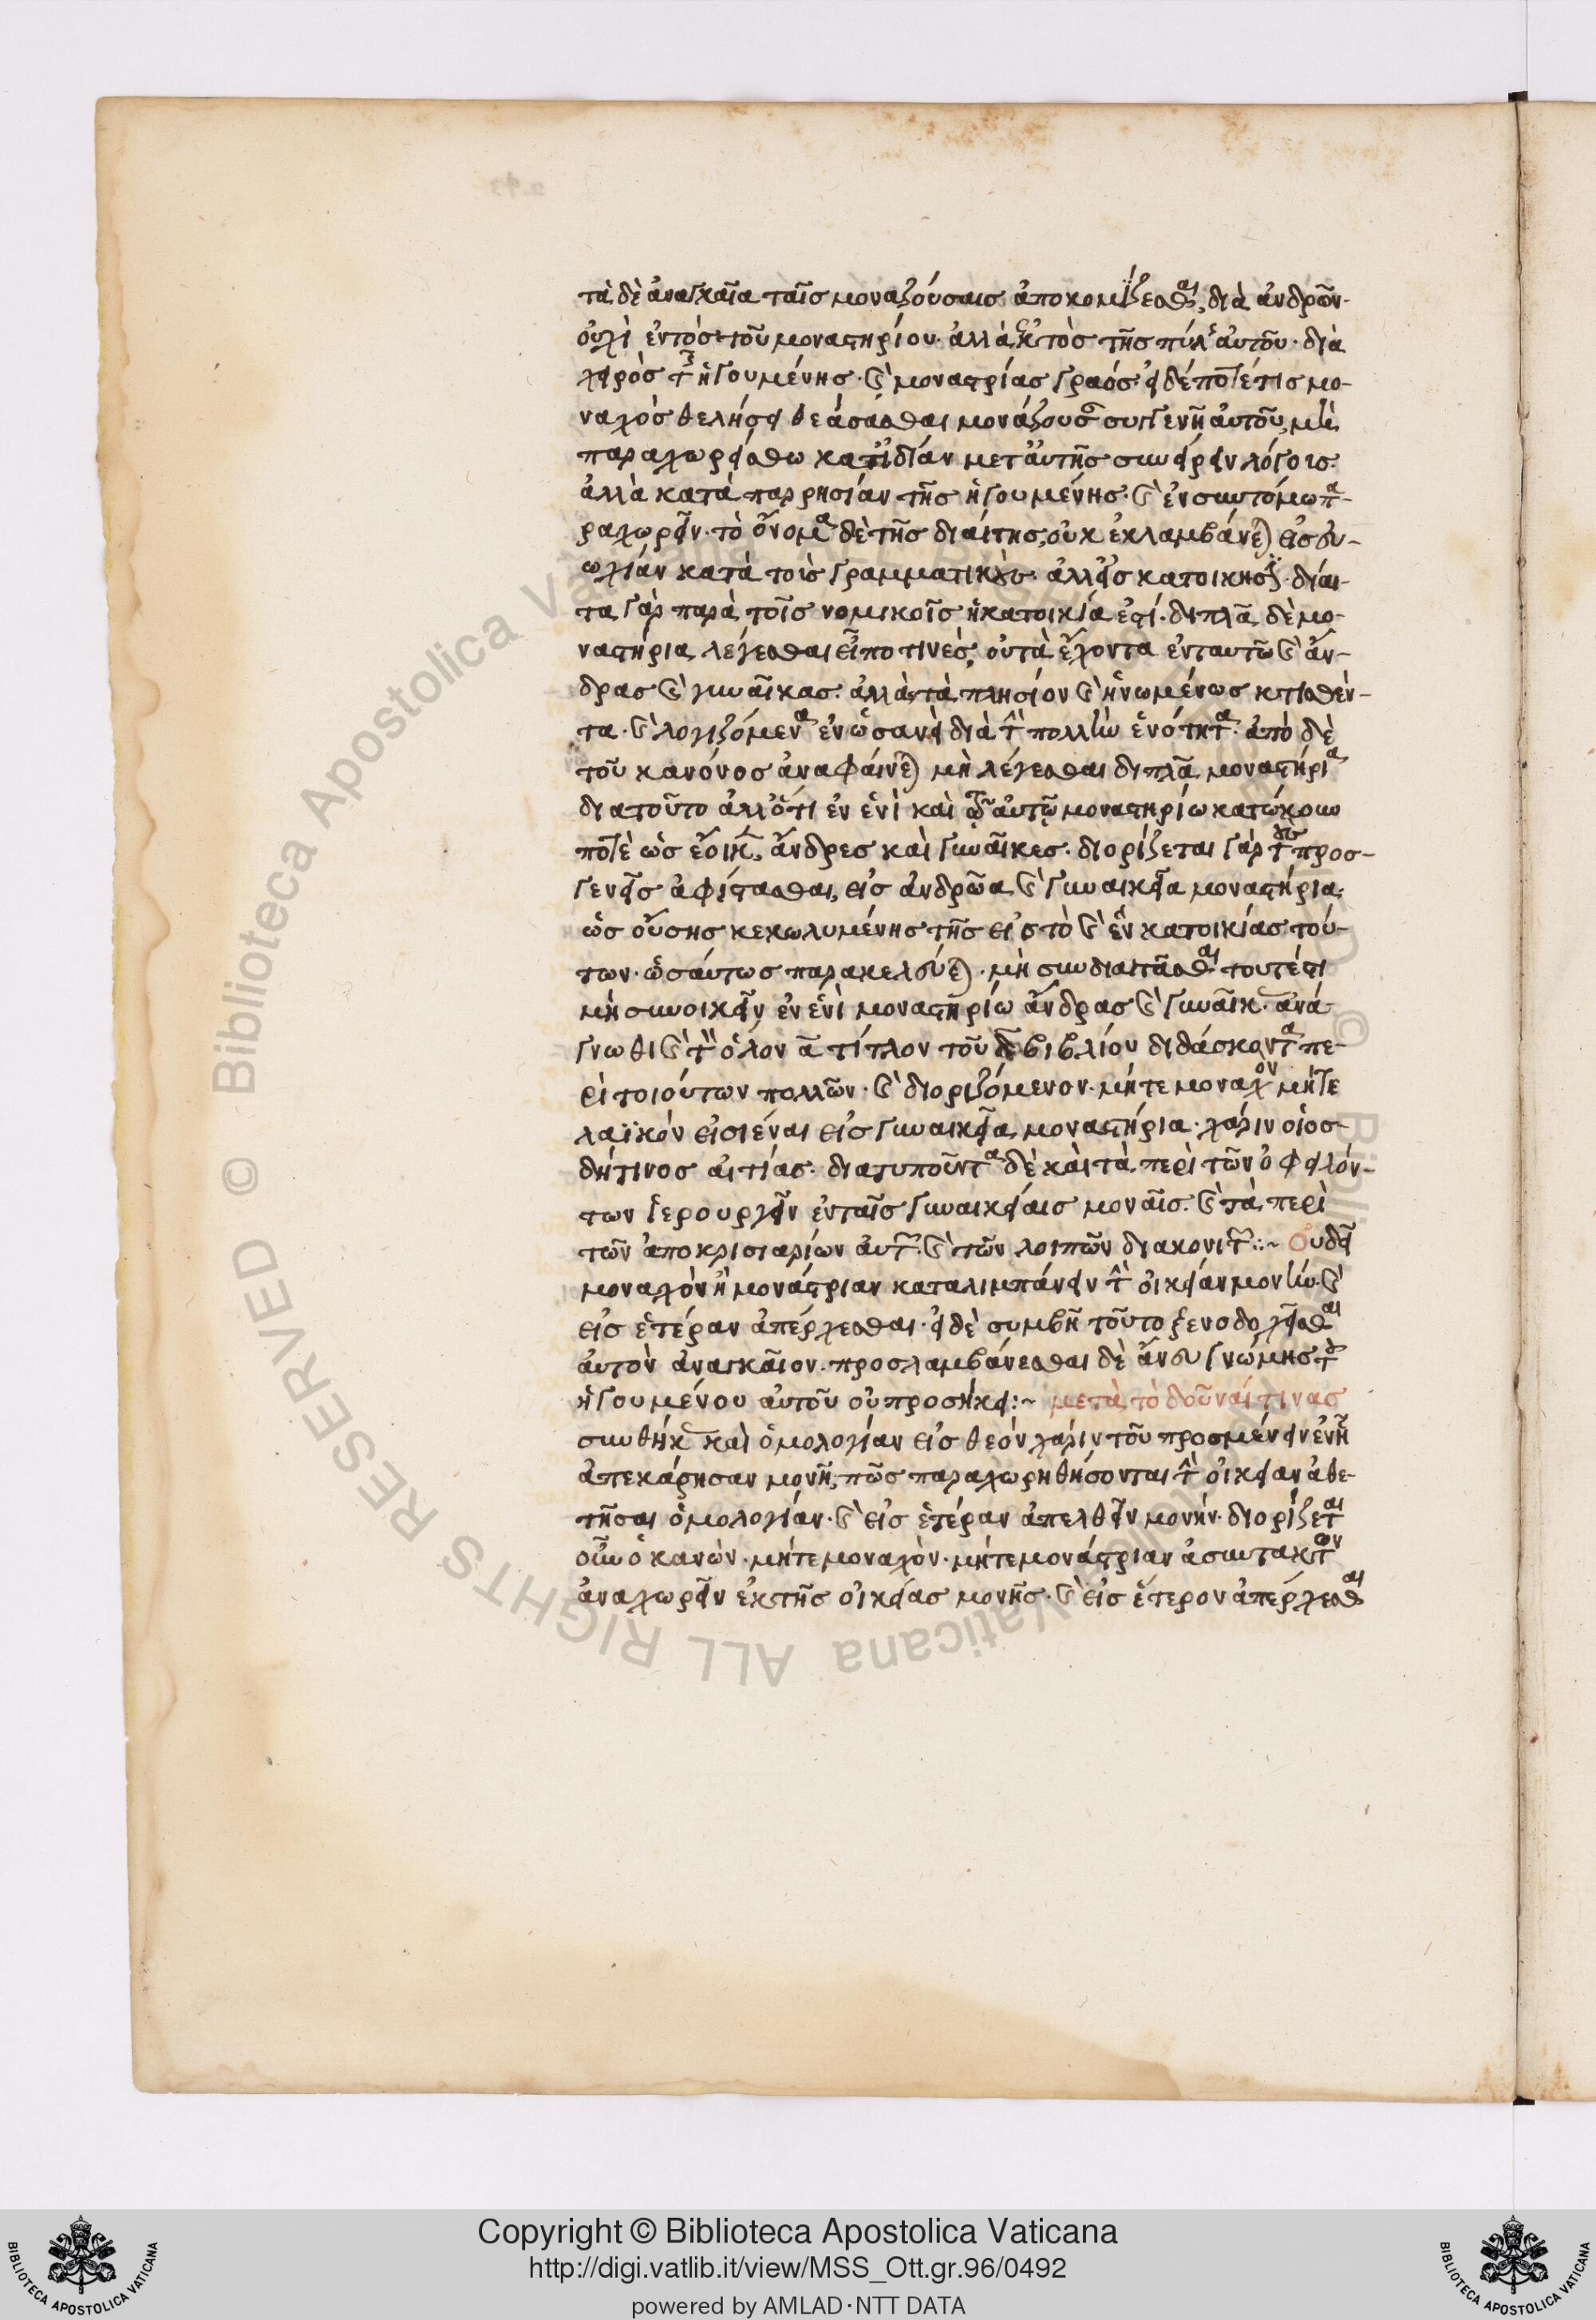 τὰ δὲ ἀναγκαῖα ταῖς μοναζούσαις ἀποκομίζεσθαι, διὰ ἀνδρῶν·
οὐχὶ ἐντὸς τοῦ μοναστηρίου· ἀλλὰ ἐκτὸς τῆς πύλης αὐτοῦ· διὰ
χειρὸς τῆς ἡγουμένης· καὶ μοναστρίας γραός· εἰ δέποτέ τις μο-
ναχὸς θελήσει θεάσασθαι μονάζουσαν συγγενῆ αὐτοῦ, μὴ
παραχωρείσθω κατιδίαν μεταὐτῆς συνείρειν λόγοις·
ἀλλὰ κατὰ παρρησίαν τῆς ἡγουμένης· καὶ ἐν συντόμω πα-
ραχωρεῖν· τὸ ὄνομα δὲ τῆς διαίτης, οὐκ ἐκλαμβάνεται εἰς εὐ-
ωχίαν κατὰ τοὺς γραμματικούς· ἀλλ' εἰς κατοίκησιν· δίαι-
τα γὰρ παρὰ τοῖς νομικοῖς ἡ κατοικία ἐστί· διπλᾶ δὲ μο-
ναστήρια λέγεσθαι εἶπόν τινες, οὐ τὰ ἔχοντα ἐνταυτῶ καὶ ἄν-
δρας καὶ γυναῖκας· ἀλλὰ τὰ πλησίον καὶ ἡνωμένως κτισθέν-
τα· καὶ λογιζόμενα ἓν ὡσανεὶ διὰ τὴν πολλὴν ἑνότητα· ἀπὸ δὲ
τοῦ κανόνος ἀναφαίνεται μὴ λέγεσθαι διπλᾶ μοναστήρια
διατοῦτο ἀλλ' ὅτι ἐν ἑνὶ καὶ τῷ αὐτῷ μοναστηρίω κατώκουν
ποτὲ ὡς ἔοικε, ἄνδρες καὶ γυναῖκες· διορίζεται γὰρ τοὺς προσ-
γενεῖς ἀφίστασθαι, εἰς ἀνδρῶα καὶ γυναικεῖα μοναστήρια
ὡς οὔσης κεκωλυμένης τῆς εἰς τὸ καὶ ἓν κατοικίας τού-
των· ὡσαύτως παρακελεύεται· μὴ συνδιαιτᾶσθαι τουτέστι
μὴ συνοικεῖν ἐν ἑνὶ μοναστηρίω ἄνδρας καὶ γυναῖκας· ἀνά-
γνωθι καὶ τὸν ὅλον α τίτλον τοῦ δ βιβλίου διδάσκοντα πε-
ρὶ τοιούτων πολλῶν· καὶ διοριζόμενον· μήτε μοναχὸν μήτε
λαϊκὸν εἰσιέναι εἰς γυναικεῖα μοναστήρια· χάριν οἱοσ-
δήτινος αἰτίας· διατυποῦντα δὲ καὶ τὰ περὶ τῶν ὀφειλόν-
των ἱερουργεῖν ἐνταῖς γυναικείαις μοναῖς· καὶ τὰ περὶ
τῶν ἀποκρισιαρίων αὐτῶν· καὶ τῶν λοιπῶν διακονιτῶν :~ Οὐδεῖ
μοναχὸν ἢ μονάστριαν καταλιμπάνειν τὴν οἰκείαν μονὴν· καὶ
εἰς ἑτέραν ἀπέρχεσθαι· εἰ δὲ συμβῆ τοῦτο ξενοδοχεῖσθαι
αὐτὸν ἀναγκαῖον· προσλαμβάνεσθαι δὲ ἄνευ γνώμης τοῦ
ἡγουμένου αὐτοῦ οὐ προσήκει :~ μετὰ τὸ δοῦναί τινας
συνθήκας καὶ ὁμολογίαν εἰς θεὸν χάριν τοῦ προσμένειν ἐν ἧ
ἀπεκάρησαν μονῆ, πῶς παραχωρηθήσονται τὴν οἰκείαν ἀθε-
τῆσαι ὁμολογίαν· καὶ εἰς ἑτέραν ἀπελθεῖν μονήν· διορίζεται
οὖν ὁ κανὼν· μήτε μοναχὸν· μήτε μονάστριαν ἀσυντάκτων
ἀναχωρεῖν ἐκ τῆς οἰκείας μονῆς· καὶ εἰς ἕτερον ἀπέρχεσθαι
Copyright © Biblioteca Apostolica Vaticana
http://digi.vatlib.it/view/MSS_Ott.gr.96/0492
powered by AMLAD·NTT DATA